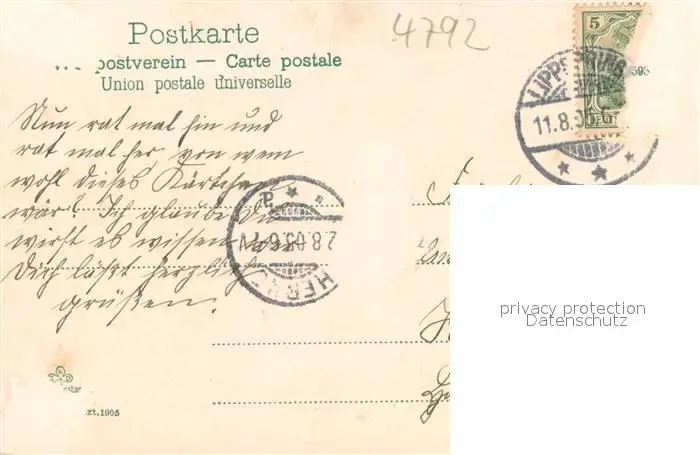 Postkarte
postverein — Carte postale
Union postale universelle
4792
5
LIPPSPRING
11.8.05
593
Nun rat mal hin und
rat mal her, von wem
wohl dieses Kärtchen
wär? Ich glaube Du
wirst es wissen
Dich läßt herzlich
grüßen.
HERN
2.8.05.6-7V
privacy protection
Datenschutz
zt.1905